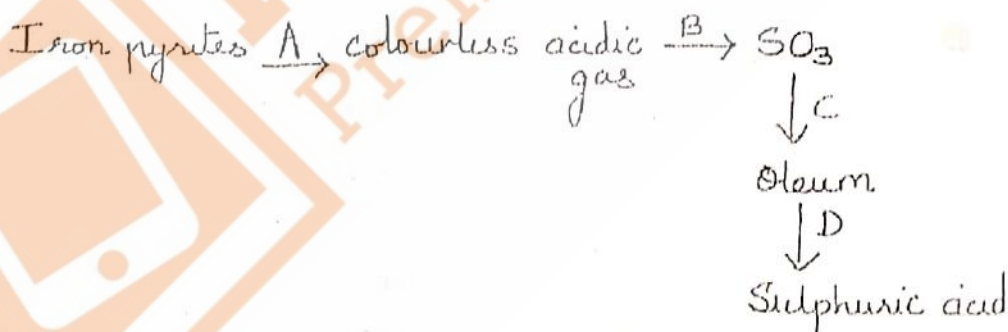 Iron pyrites A→ colourless acidic gas B→ SO₃
↓ C
Oleum
↓ D
Sulphuric acid
Prem